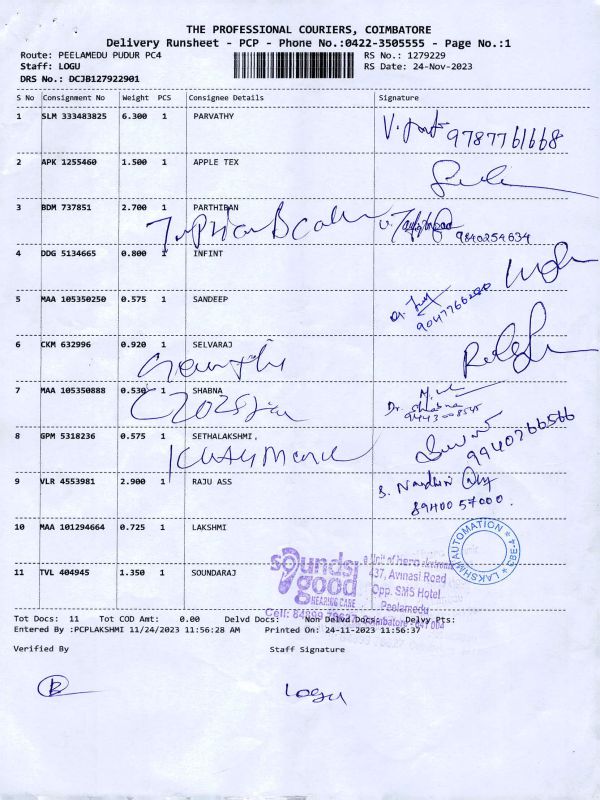 THE PROFESSIONAL COURIERS, COIMBATORE
Delivery Runsheet - PCP - Phone No.:0422-3505555 - Page No.:1
Route: PEELAMEDU PUDUR PC4 RS No.: 1279229
Staff: LOGU RS Date: 24-Nov-2023
DRS No.: DCJB127922901
S No Consignment No Weight PCS Consignee Details Signature
1 SLM 333483825 6.300 1 PARVATHY
9787761668
2 APK 1255460 1.500 1 APPLE TEX
3 BDM 737851 2.700 1 PARTHIBAN
9840254634
4 DDG 5134665 0.800 1 INFINT
5 MAA 105350250 0.575 1 SANDEEP
6 CKM 632996 0.920 1 SELVARAJ
7 MAA 105350888 0.530 1 SHABNA
Dr. Shabna
8 GPM 5318236 0.575 1 SETHALAKSHMI,
9940766566
9 VLR 4553981 2.900 1 RAJU ASS
S. Nandhini
89400 57000.
10 MAA 101294664 0.725 1 LAKSHMI
LAKSHMI AUTOMATION
11 TVL 404945 1.350 1 SOUNDARAJ
sounds good
HEARING CARE
a Unit of hero electronic
437, Avinasi Road
Opp. SMS Hotel
Peelamedu
Tot Docs: 11 Tot COD Amt: 0.00 Delvd Docs: Non Delvd Docs: Delvy Pts:
Entered By :PCPLAKSHMI 11/24/2023 11:56:28 AM Printed On: 24-11-2023 11:56:37
Verified By Staff Signature
Logu